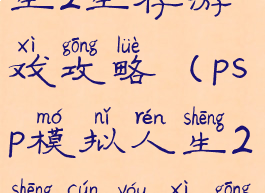 生2生存游
xì gōng lüè
戏攻略（ps
mó nǐ rén shēng
p模拟人生2
shēng cún yóu xì gōng